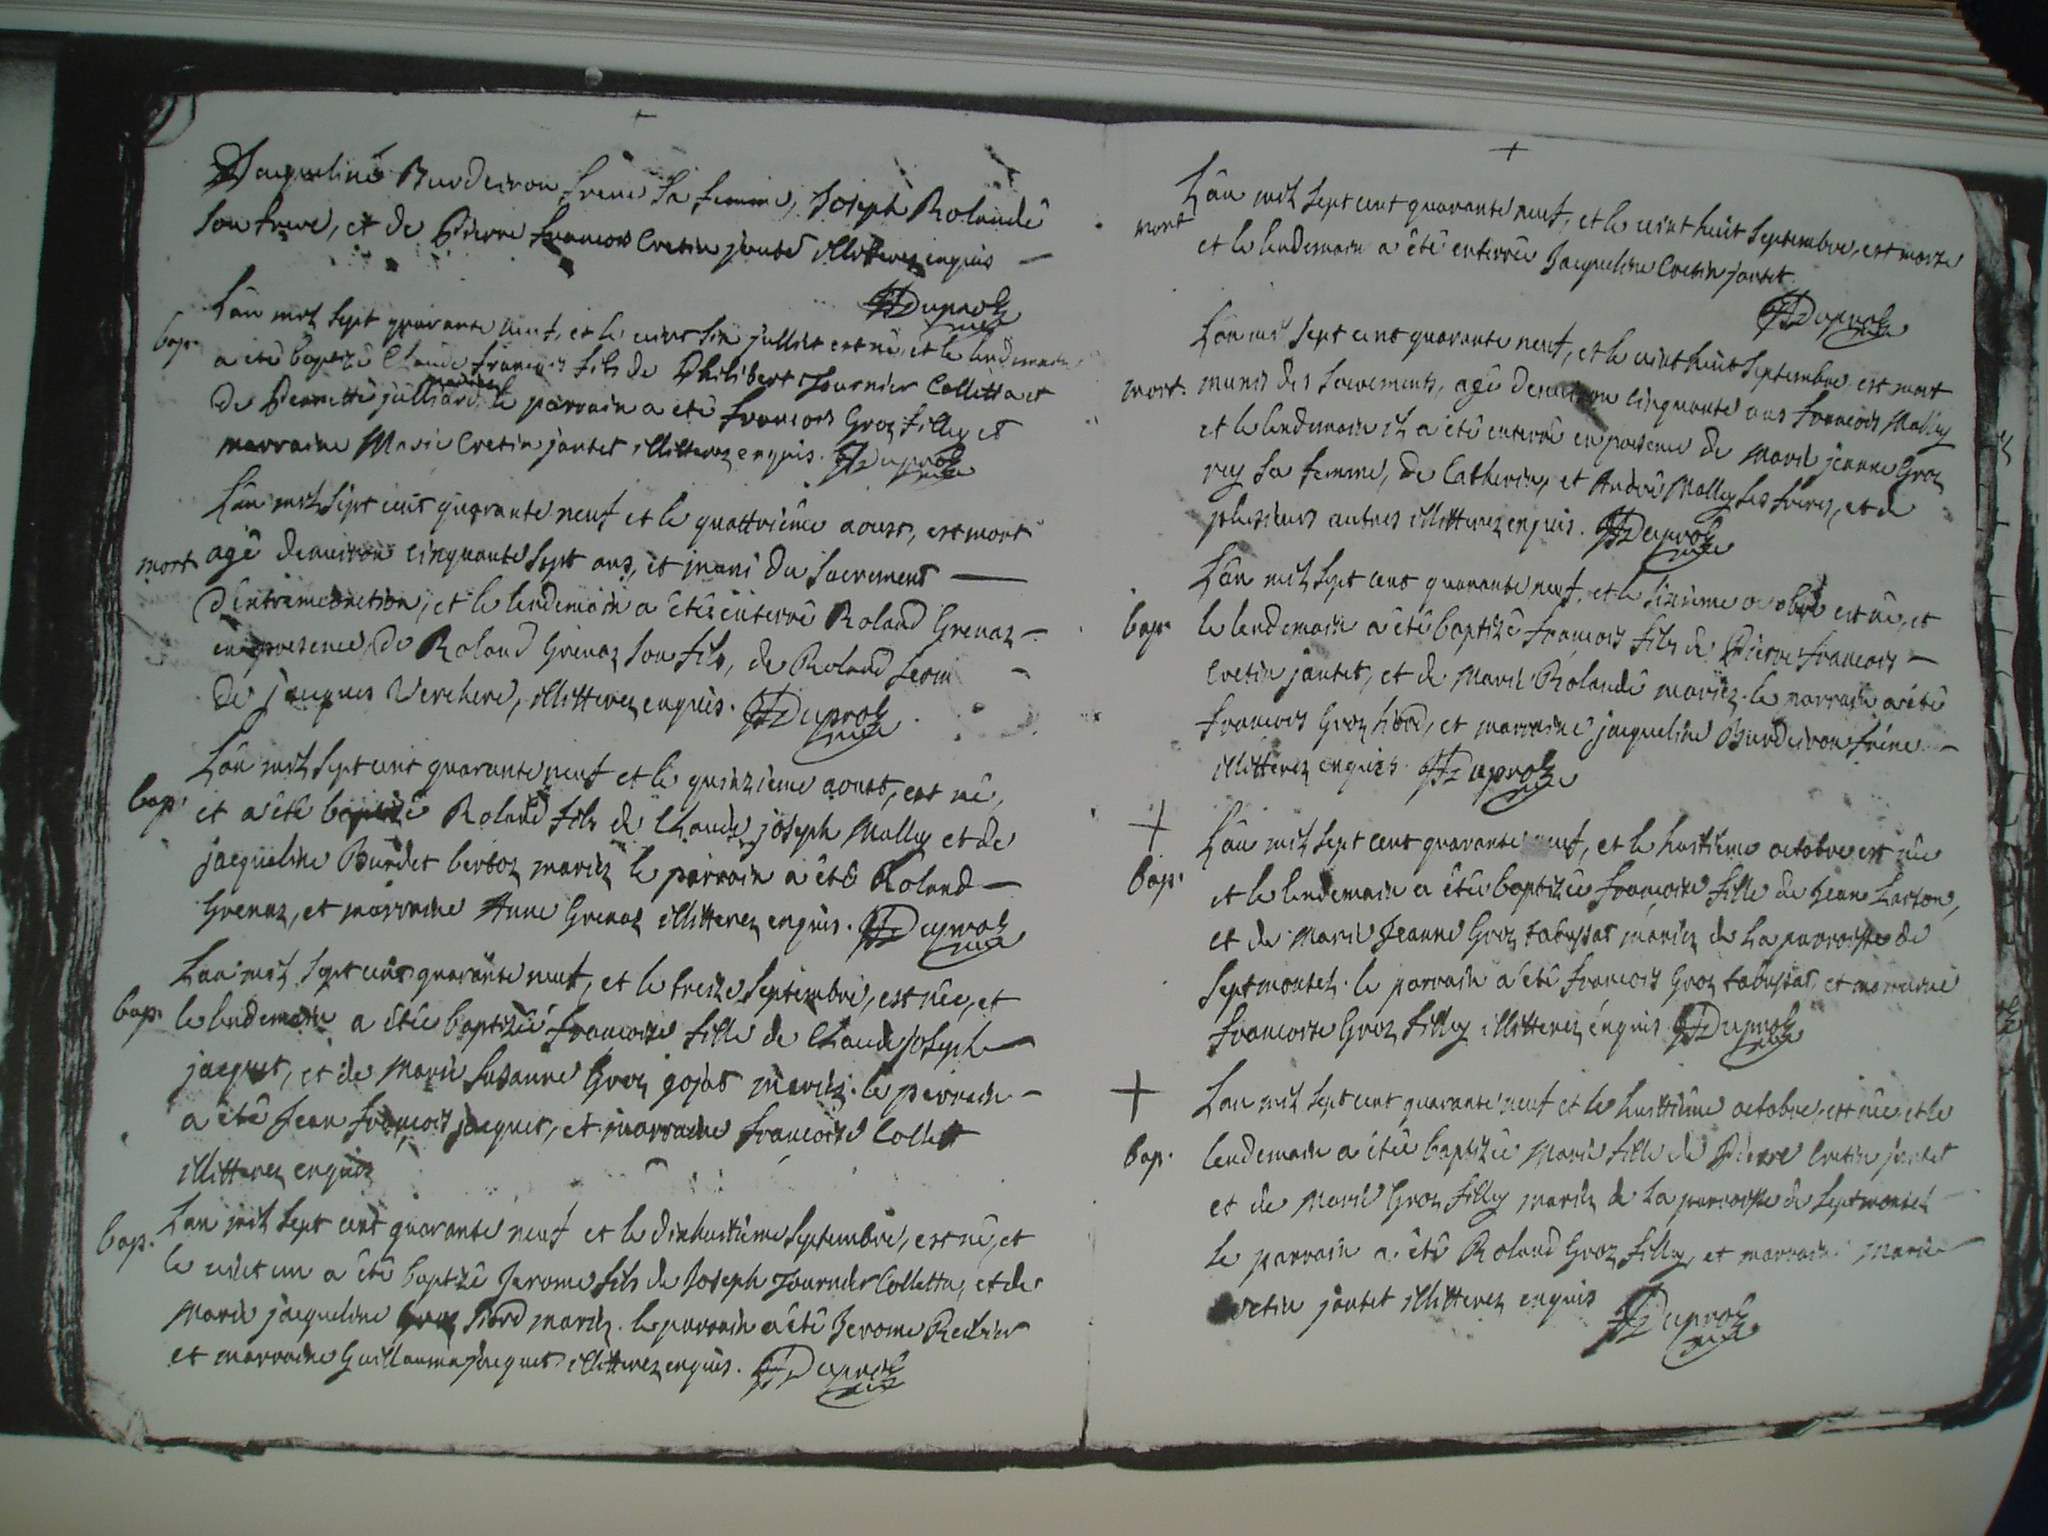 Jacqueline Burdeiron frene sa femme, Joseph Rolandê
son frere, et de Pierre francois Cretin jantet illitterez enquis
L'an mil sept quarante neuf, et le vint six julliet est nê, et le lendemain
bap. a êtê baptizê Claude francois fils de Philibert Tournier Colletta et
de Pernette julliard mariez le parrain a êtê francois Groz filley et
marraine Marie Cretin jantet illitterez enquis. Duproz
L'an mil sept cent quarante neuf et le quattriême aoust, est mort
mort agê denviron cinquante sept ans, et muni du sacrement
d'extremeonction, et le lendemain a êtê enterrê Roland Grenaz
en presence de Roland Grenaz son fils, de Roland
de jacques Verchere, illitterez enquis. Duproz
L'an mil sept cent quarante neuf et le quinzieme aoust, est nê,
bap. et a êtê baptizê Roland fils de Claude joseph Malley et de
jacqueline Burdet bertoz mariez le parrain a êtê Roland
Grenaz, et marraine Anne Grenaz illitterez enquis. Duproz
L'an mil sept cent quarante neuf, et le treize septembre, est nêe, et
bap. le lendemain a êtêe baptizêe francoise fille de Claude joseph
jacquet, et de Marie Susanne Groz gojat mariez. le parrain
a êtê Jean francois jacquet, et marraine francoise Collett
illitterez enquis
L'an mil sept cent quarante neuf et le dixhuitiême septembre, est nê, et
bap. le vint un a êtê baptizê Jerome fils de Joseph Tournier Colletta, et de
Marie jacqueline Groz hord mariez. le parrain a êtê Jerome
et marraine Guillauma jacquet illitterez enquis. Duproz
L'an mil sept cent quarante neuf, et le vint huit septembre, est morte
mort et le lendemain a êtê enterrêe Jacqueline Cretin jantet
Duproz
L'an mil sept cent quarante neuf, et le vint huit septembre est mort
mort. munis des sacrements, agê denviron cinquante ans francois Malley
et le lendemain il a êtê enterrê en presence de Marie jeanne Groz
rey sa femme, de Catherine, et Andrê Malley ses freres, et de
plusieurs autres illitterez enquis. Duproz
L'an mil sept cent quarante neuf, et le sixieme octobre est nê, et
bap. le lendemain a êtê baptizê francois fils de Pierre francois
Cretin jantet, et de Marie Rolandê mariez. le parrain a êtê
francois Groz hord, et marraine jacqueline Burdeiron frêne
illitterez enquis. Duproz
+ L'an mil sept cent quarante neuf, et le huitiême octobre est nêe
bap. et le lendemain a êtêe baptizêe francoise fille de Jean Lacton,
et de Marie Jeanne Groz tabussat mariez de la parroisse de
Septmontel. le parrain a êtê francois Groz tabussat, et marraine
francoise Groz filley illitterez enquis Duproz
+ L'an mil sept cent quarante neuf et le huittiême octobre, est nêe et le
bap. lendemain a êtêe baptizêe Marie fille de Pierre Cretin jantet
et de Marie Groz filley mariez de la parroisse de Septmontel
le parrain a êtê Roland Groz filley, et marraine Marie
Cretin jantet illitterez enquis Duproz